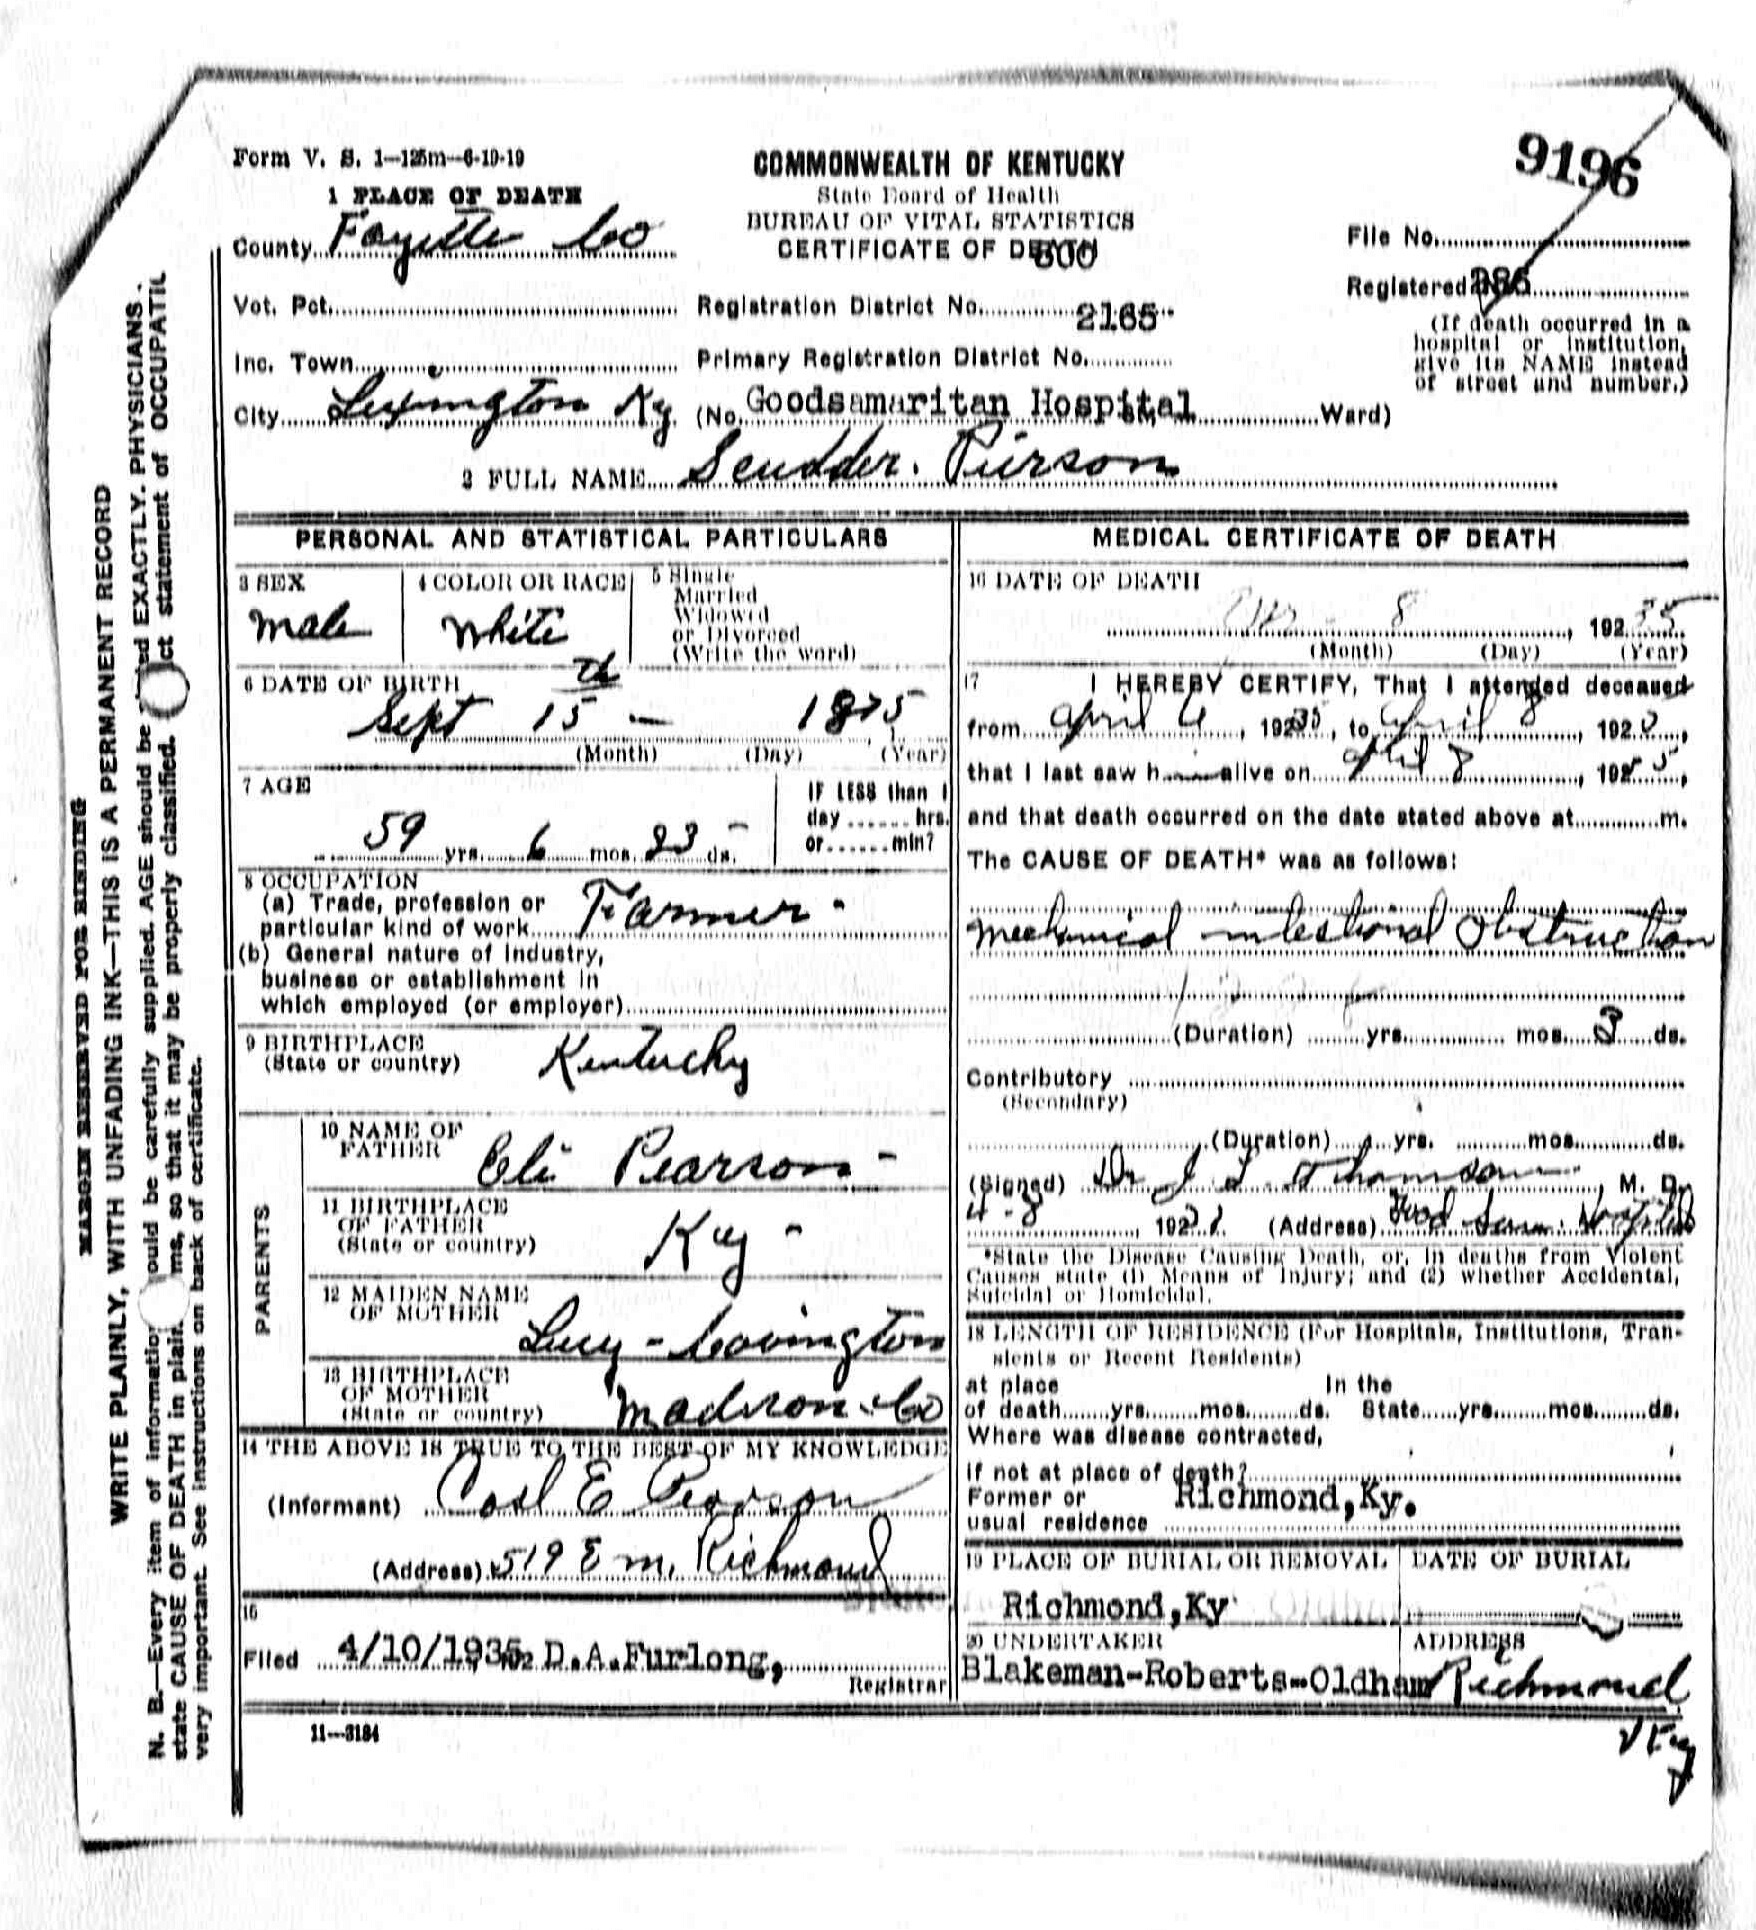 Form V. S. 1—125m—6-19-19
COMMONWEALTH OF KENTUCKY
State Board of Health
BUREAU OF VITAL STATISTICS
CERTIFICATE OF DEATH
600
9196
1 PLACE OF DEATH
County Fayette Co
File No.
Registered No. 386
Vot. Pct.
Registration District No.
2165
(If death occurred in a
hospital or institution,
give its NAME instead
of street and number.)
Inc. Town
Primary Registration District No.
City Lexington Ky. (No. Goodsamaritan Hospital St., Ward)
2 FULL NAME Scudder. Pierson
PERSONAL AND STATISTICAL PARTICULARS
3 SEX
Male
4 COLOR OR RACE
White
5 Single
Married
Widowed
or Divorced
(Write the word)
6 DATE OF BIRTH
Sept 15th — 1875
(Month) (Day) (Year)
7 AGE
59 yrs. 6 mos. 23 ds.
IF LESS than 1
day ...... hrs.
or ...... min?
8 OCCUPATION
(a) Trade, profession or
particular kind of work Farmer
(b) General nature of industry,
business or establishment in
which employed (or employer)
9 BIRTHPLACE
(State or country)
Kentucky
PARENTS
10 NAME OF
FATHER
Eli Pearson
11 BIRTHPLACE
OF FATHER
(State or country)
Ky
12 MAIDEN NAME
OF MOTHER
Lucy - Covington
13 BIRTHPLACE
OF MOTHER
(State or country)
Madison Co
14 THE ABOVE IS TRUE TO THE BEST OF MY KNOWLEDGE
(Informant) Carl E Pearson
(Address) 519 E M. Richmond
15
Filed 4/10/1935 192 D.A.Furlong,
Registrar
11—3184
MEDICAL CERTIFICATE OF DEATH
16 DATE OF DEATH
8, 192 35
(Month) (Day) (Year)
17 I HEREBY CERTIFY, That I attended deceased
from April 6, 192 35, to April 8, 192 5,
that I last saw h alive on April 8, 192 5,
and that death occurred on the date stated above at m.
The CAUSE OF DEATH* was as follows:
Mechanical intestional Obstruction
(Duration) yrs. mos. 3 ds.
Contributory
(Secondary)
(Duration) yrs. mos. ds.
(Signed) Dr J L Thomson, M. D.
4-8, 192 (Address) Good Sam. Hospital
*State the Disease Causing Death, or, in deaths from Violent
Causes state (1) Means of Injury; and (2) whether Accidental,
Suicidal or Homicidal.
18 LENGTH OF RESIDENCE (For Hospitals, Institutions, Tran-
sients or Recent Residents)
at place In the
of death yrs. mos. ds. State yrs. mos. ds.
Where was disease contracted,
if not at place of death?
Former or
usual residence Richmond,Ky.
19 PLACE OF BURIAL OR REMOVAL
Richmond,Ky
DATE OF BURIAL
20 UNDERTAKER
Blakeman-Roberts-Oldham
ADDRESS
Richmond
Ky
MARGIN RESERVED FOR BINDING
WRITE PLAINLY, WITH UNFADING INK—THIS IS A PERMANENT RECORD
N. B.—Every item of information should be carefully supplied. AGE should be stated EXACTLY. PHYSICIANS
state CAUSE OF DEATH in plain terms, so that it may be properly classified. Exact statement of OCCUPATIO
very important. See instructions on back of certificate.